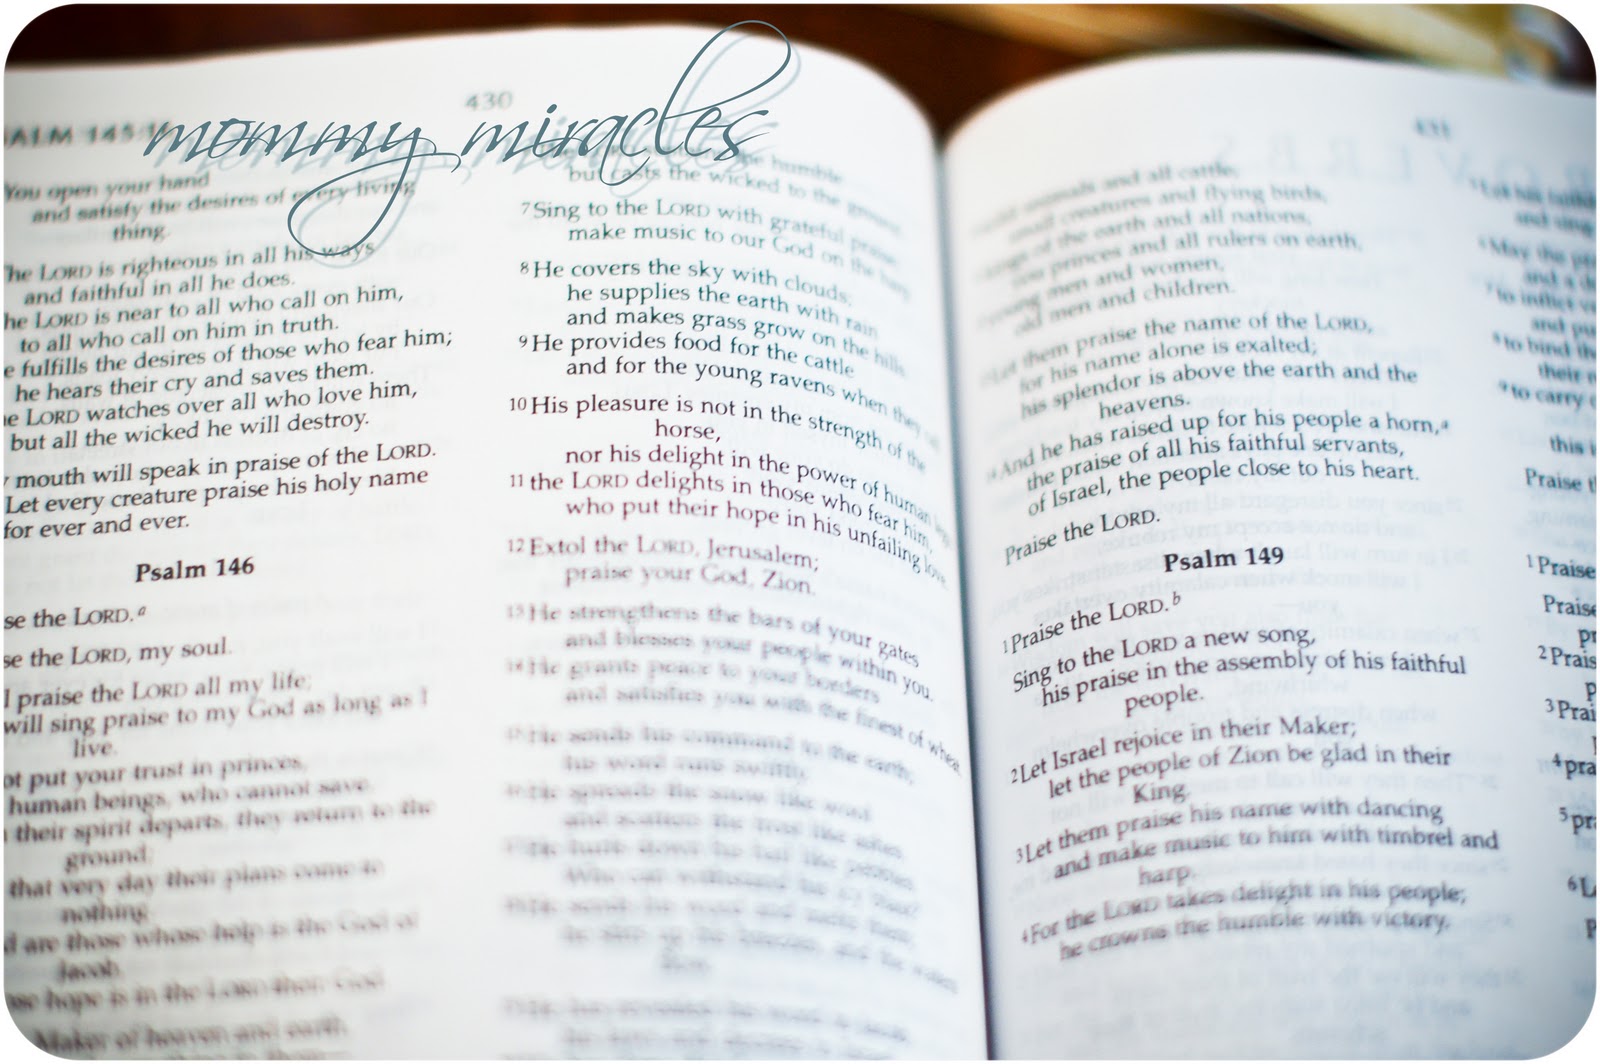 mommy miracles
430
ALM 145:1
You open your hand
and satisfy the desires of every living
thing.
he LORD is righteous in all his ways
and faithful in all he does.
he LORD is near to all who call on him,
to all who call on him in truth.
e fulfills the desires of those who fear him;
he hears their cry and saves them.
e LORD watches over all who love him,
but all the wicked he will destroy.
mouth will speak in praise of the LORD.
Let every creature praise his holy name
for ever and ever.
Psalm 146
se the LORD.a
se the LORD, my soul.
I praise the LORD all my life;
will sing praise to my God as long as I
live.
ot put your trust in princes,
human beings, who cannot save.
their spirit departs, they return to the
ground;
that very day their plans come to
nothing.
d are those whose help is the God of
Jacob,
se hope is in the LORD their God.
Maker of heaven and earth,
humble
but casts the wicked to the ground.
7 Sing to the LORD with grateful praise;
make music to our God on the harp.
8 He covers the sky with clouds;
he supplies the earth with rain
and makes grass grow on the hills.
9 He provides food for the cattle
and for the young ravens when they call.
10 His pleasure is not in the strength of the
horse,
nor his delight in the power of human legs;
11 the LORD delights in those who fear him,
who put their hope in his unfailing love.
12 Extol the LORD, Jerusalem;
praise your God, Zion.
13 He strengthens the bars of your gates
and blesses your people within you.
14 He grants peace to your borders
and satisfies you with the finest of wheat.
15 He sends his command to the earth;
his word runs swiftly.
16 He spreads the snow like wool
and scatters the frost like ashes.
17 He hurls down his hail like pebbles.
Who can withstand his icy blast?
431
animals and all cattle,
small creatures and flying birds,
kings of the earth and all nations,
you princes and all rulers on earth,
young men and women,
old men and children.
Let them praise the name of the LORD,
for his name alone is exalted;
his splendor is above the earth and the
heavens.
14 And he has raised up for his people a horn,a
the praise of all his faithful servants,
of Israel, the people close to his heart.
Praise the LORD.
Psalm 149
1 Praise the LORD.b
Sing to the LORD a new song,
his praise in the assembly of his faithful
people.
2 Let Israel rejoice in their Maker;
let the people of Zion be glad in their
King.
3 Let them praise his name with dancing
and make music to him with timbrel and
harp.
4 For the LORD takes delight in his people;
he crowns the humble with victory.
and sing
6 May the
and a d
7 to inflict
and pu
8 to bind th
their
9 to carry
this i
Praise t
1 Praise
Praise
2 Prais
3 Prai
4 pra
5 pr
6 L